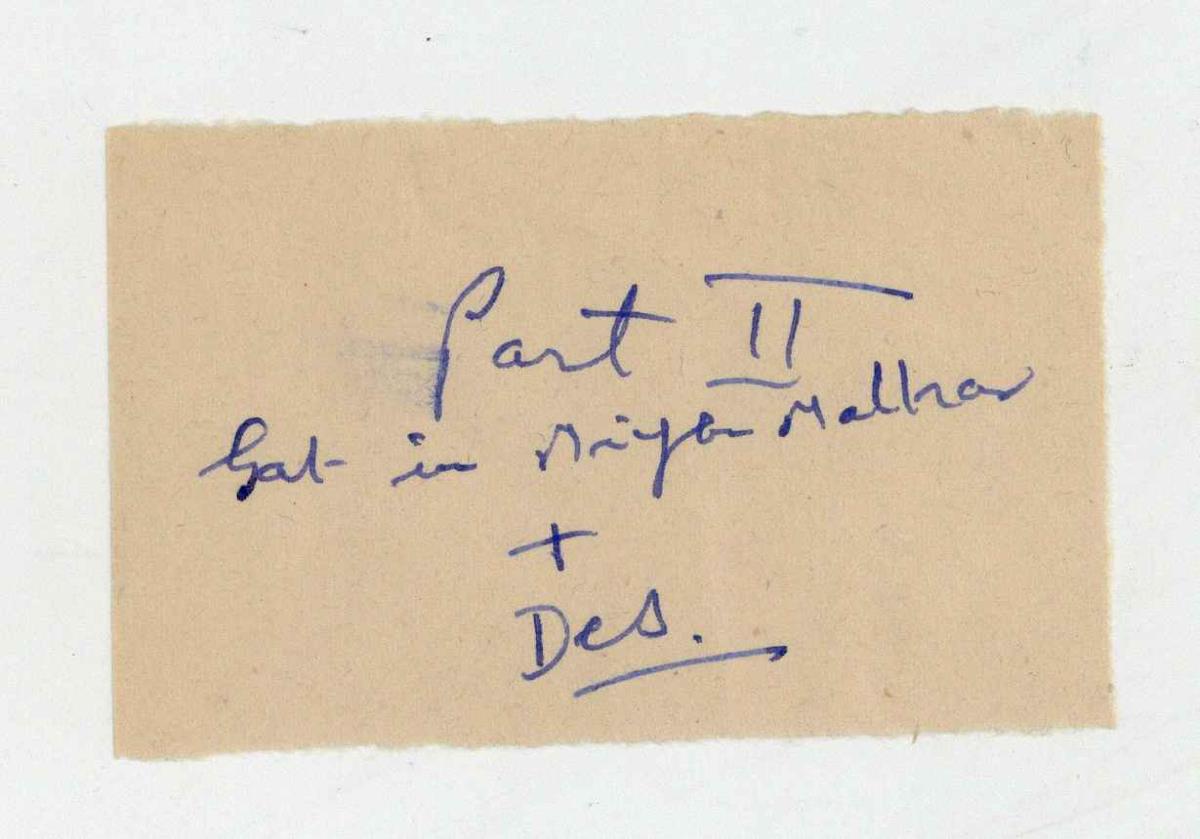 Part II
Gat in Miyan Malhar
+
Des.